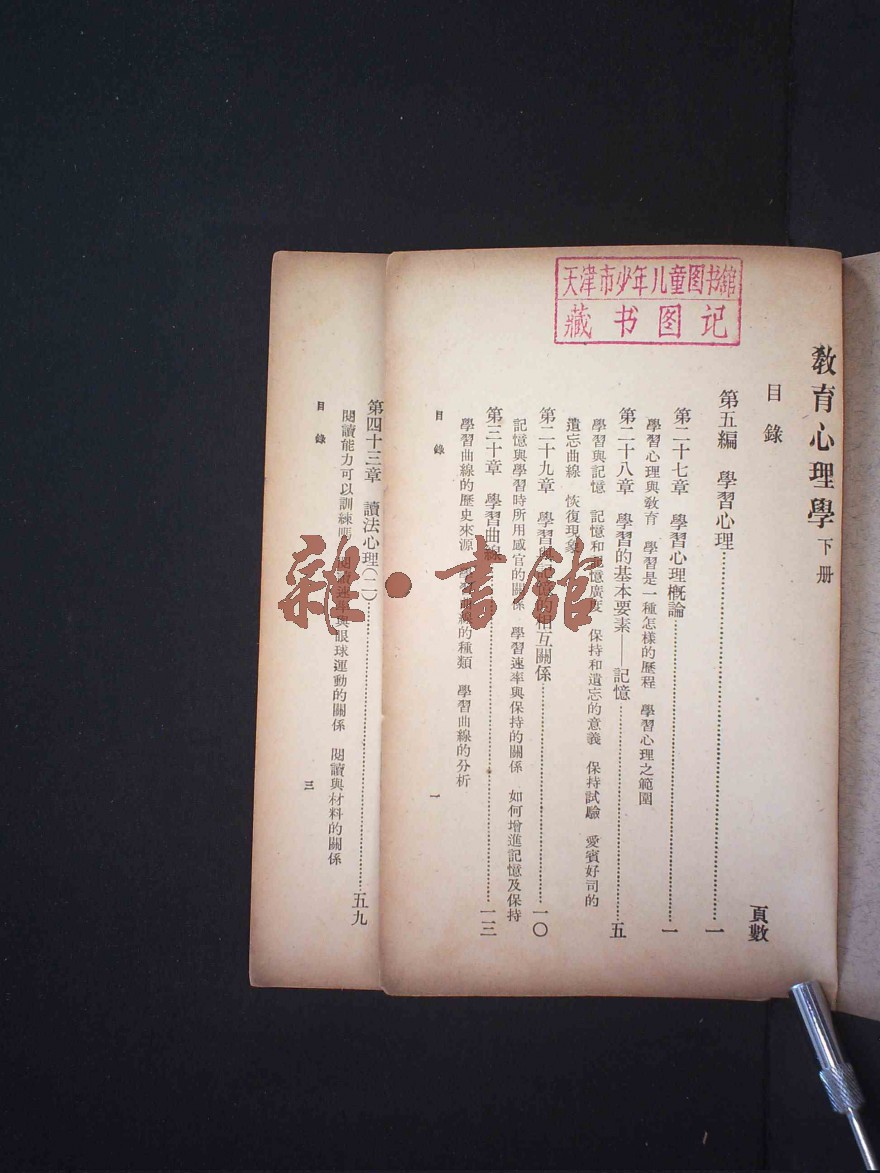 天津市少年儿童图书館
藏书图记
教育心理學 下册
目錄
頁數
第五編 學習心理……一
第二十七章 學習心理概論……一
學習心理與教育 學習是一種怎樣的歷程 學習心理之範圍
第二十八章 學習的基本要素——記憶……五
學習與記憶 記憶和記憶廣度 保持和遺忘的意義 保持試驗 愛賓好司的
遺忘曲線 恢復現象
第二十九章 學習與記憶的相互關係……一〇
記憶與學習時所用感官的關係 學習速率與保持的關係 如何增進記憶及保持
第三十章 學習曲線……一三
學習曲線的歷史來源 學習曲線的種類 學習曲線的分析
目錄
一
第四十三章 讀法心理(二)……五九
閱讀能力可以訓練嗎 閱讀速率與眼球運動的關係 閱讀與材料的關係
目錄
三
雜·書館